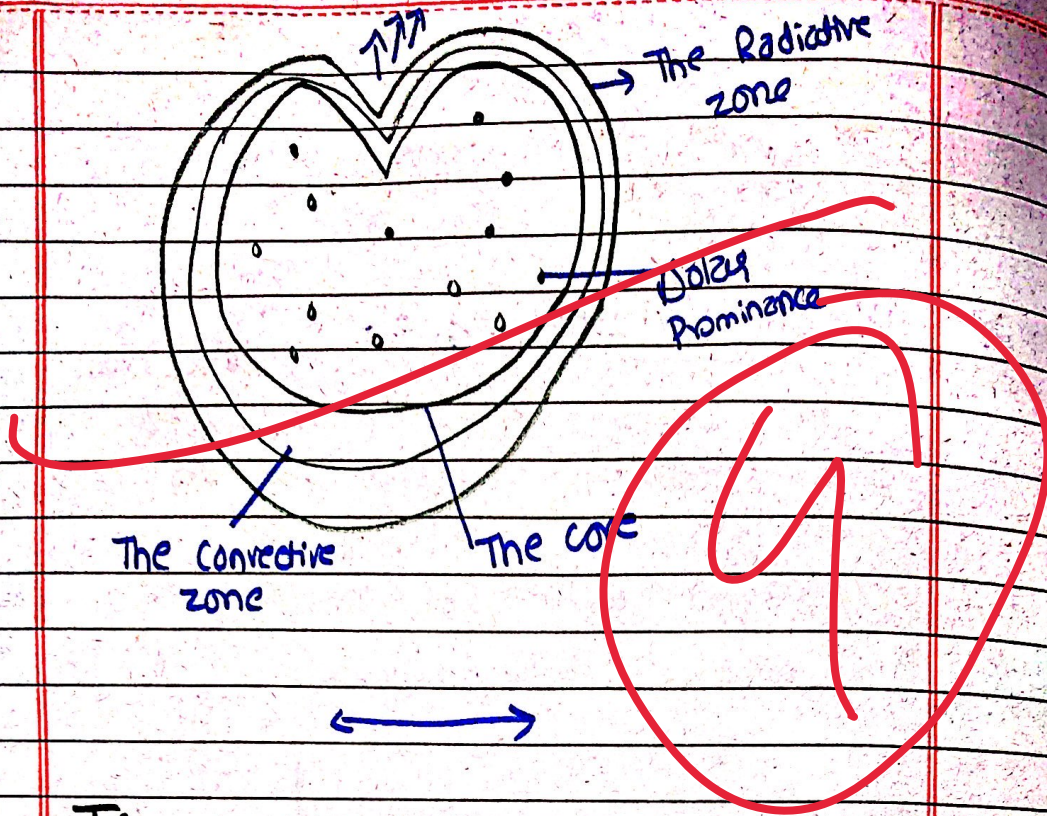 The Radiative
zone
Prominance
The Convective
zone
The core
9